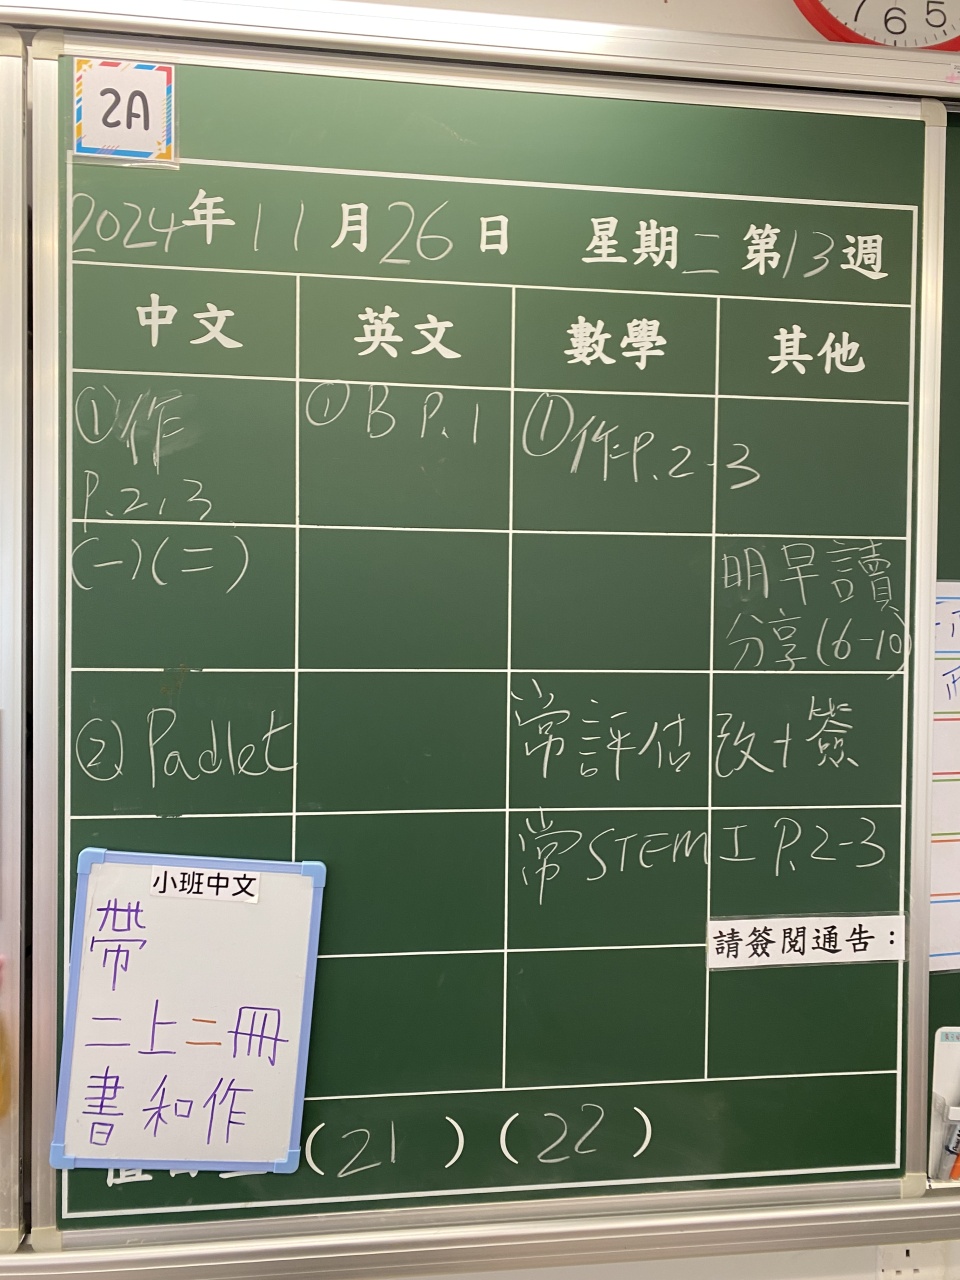 7 6 5
2A
2024年11月26日 星期二 第13週
中文 英文 數學 其他
①作
P.2,3
① B P.1
①作P.2-3
(一)(二)
明早讀
分享(6-10)
② Padlet
常評估 改+簽
常STEM工 P.2-3
請簽閱通告：
小班中文
帶
二上二冊
書和作
(21) (22)